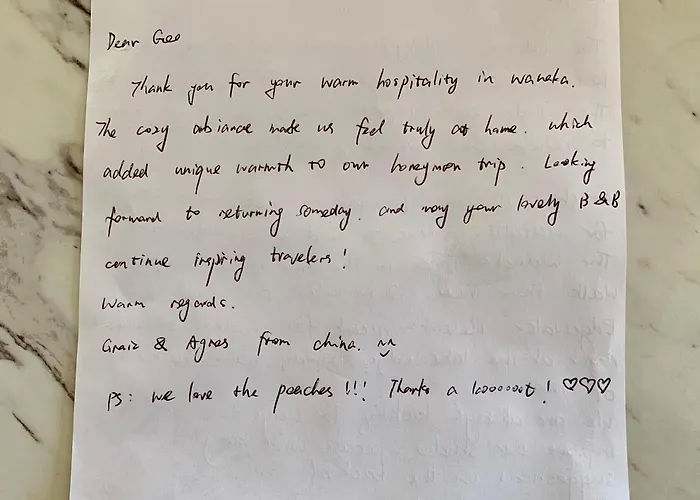 Dear Geo
Thank you for your warm hospitality in wanaka.
The cozy abiance made us feel truly at home. which
added unique warmth to our honeymoon trip. Looking
forward to returning someday. and may your lovely B&B
continue inspiring travelers!
Warm regards.
& Agnes from china.
PS: we love the peaches!!! Thanks a looooooot! ♡♡♡